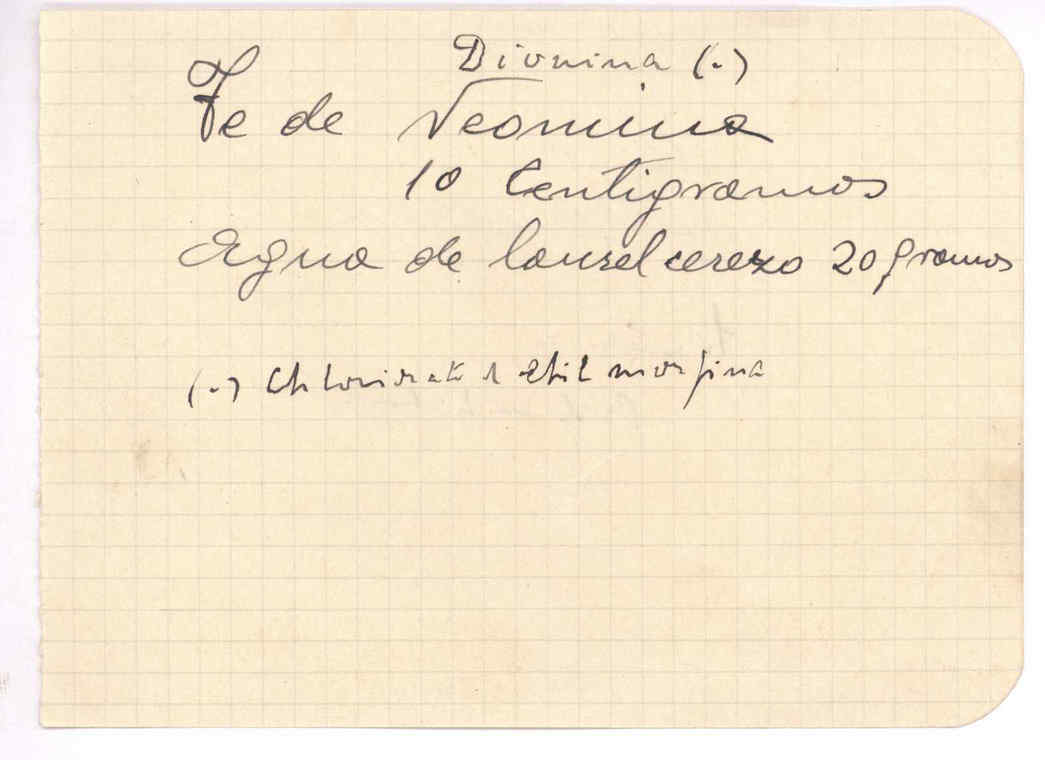 Dionina (.)
Te de Veomina
10 Centigramos
Agua de laurel cerezo 20 gramos
(.) Chloridrato d etil morfina